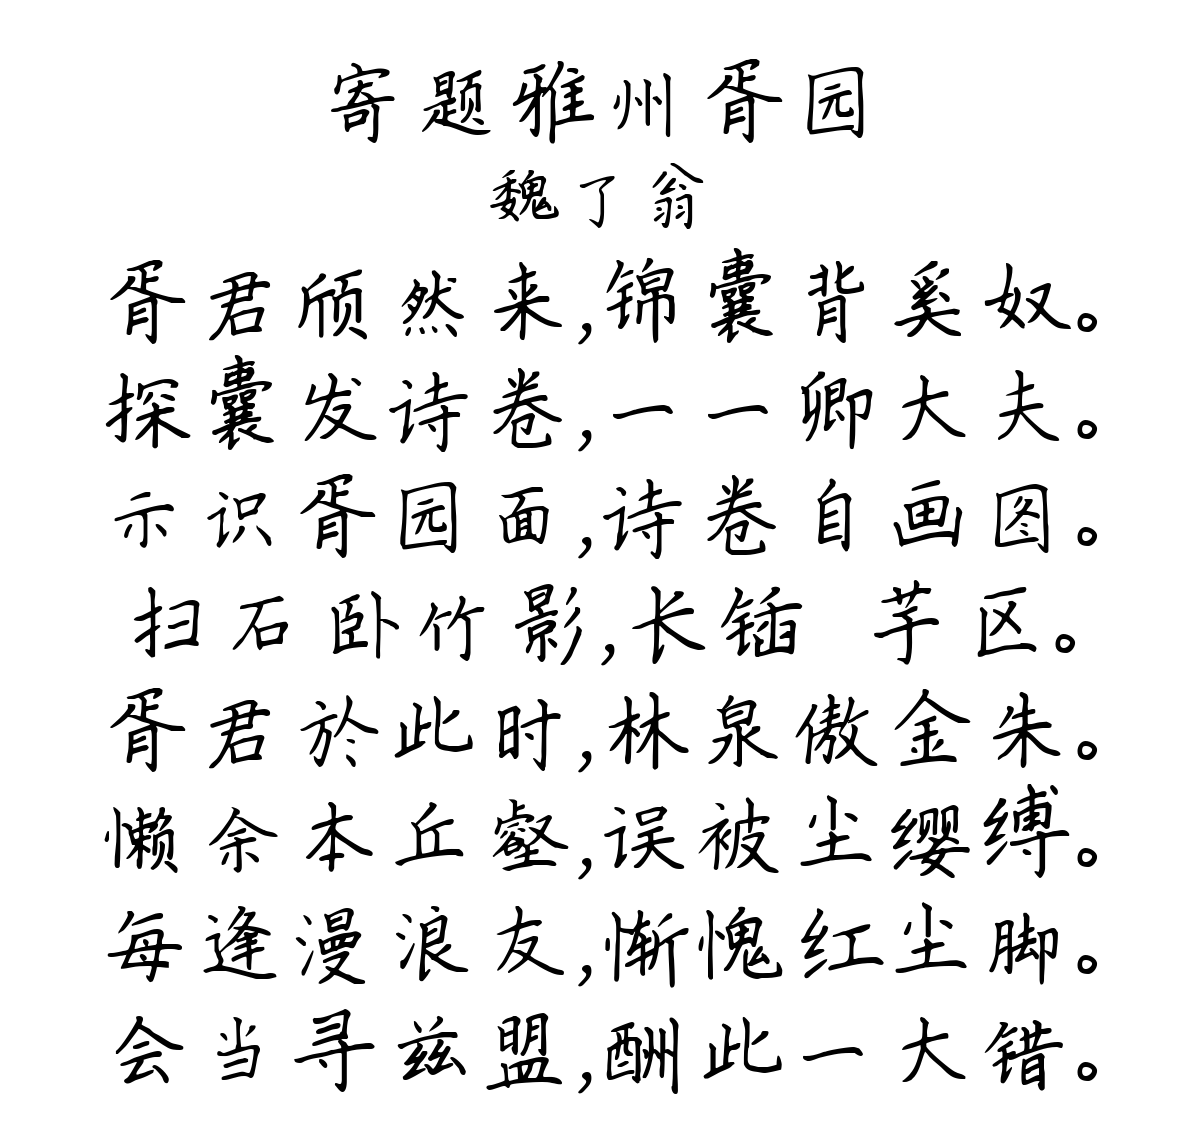 寄题雅州胥园
魏了翁
胥君颀然来,锦囊背奚奴。
探囊发诗卷,一一卿大夫。
示识胥园面,诗卷自画图。
扫石卧竹影,长锸 芋区。
胥君於此时,林泉傲金朱。
懒余本丘壑,误被尘缨缚。
每逢漫浪友,惭愧红尘脚。
会当寻兹盟,酬此一大错。